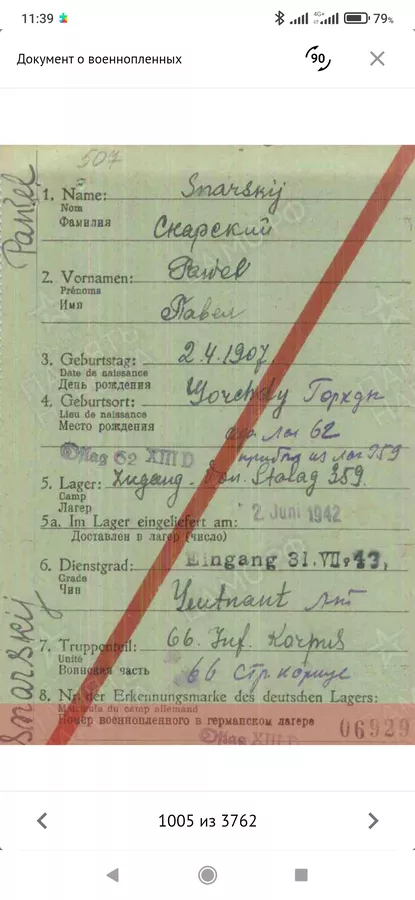 11:39
4G+
79%
Документ о военнопленных
90
507
Paweł
1. Name: Snarskij
Nom
Фамилия Снарский
2. Vornamen: Paweł
Prénoms
Имя Павел
3. Geburtstag: 2.4.1907.
Date de naissance
День рождения
4. Geburtsort:
Lieu de naissance
Место рождения
лаг 62
Oflag 62 XIII D прибыл из лаг 359
5. Lager: Zugang. Von Stalag 359.
Camp
Лагерь
5a. Im Lager eingeliefert am: 2. Juni 1942
Доставлен в лагерь (число)
Eingang 31. VII. 43.
6. Dienstgrad:
Grade
Чин Leutnant лт
7. Truppenteil: 66. Inf. Korpus
Unité
Воинская часть 66 стр корпус
Snarskij
8. Nr. der Erkennungsmarke des deutschen Lagers:
Matricule du camp allemand
Номер военнопленного в германском лагере
06929
Oflag XIII D
1005 из 3762